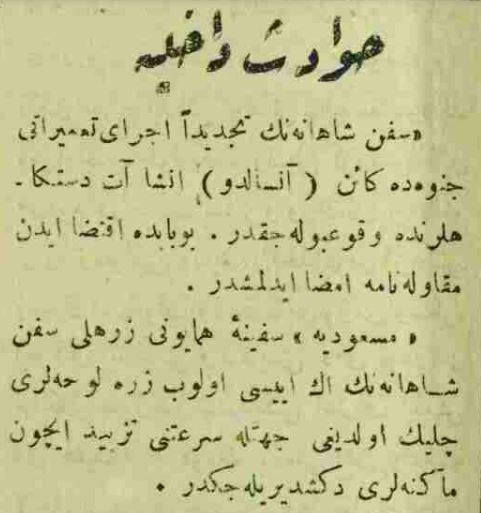 حوادث داخليه
«سفن شاهانه‌نك تجديداً اجراى تعميراتى
جنوه‌ده كائن ( آنسالدو ) انشا آت دستكا-
هلرنده وقوعبوله‌جقدر . بوبابده اقتضا ايدن
مقاوله‌نامه امضا ايدلمشدر .
« مسعوديه » سفينهٔ همايونى زرهلى سفن
شاهانه‌نك اك اييسى اولوب زره لوحه‌لرى
چليك اولديغى جهتله سرعتنى تزييد ايچون
ماكنه‌لرى دكشديريله‌جكدر .